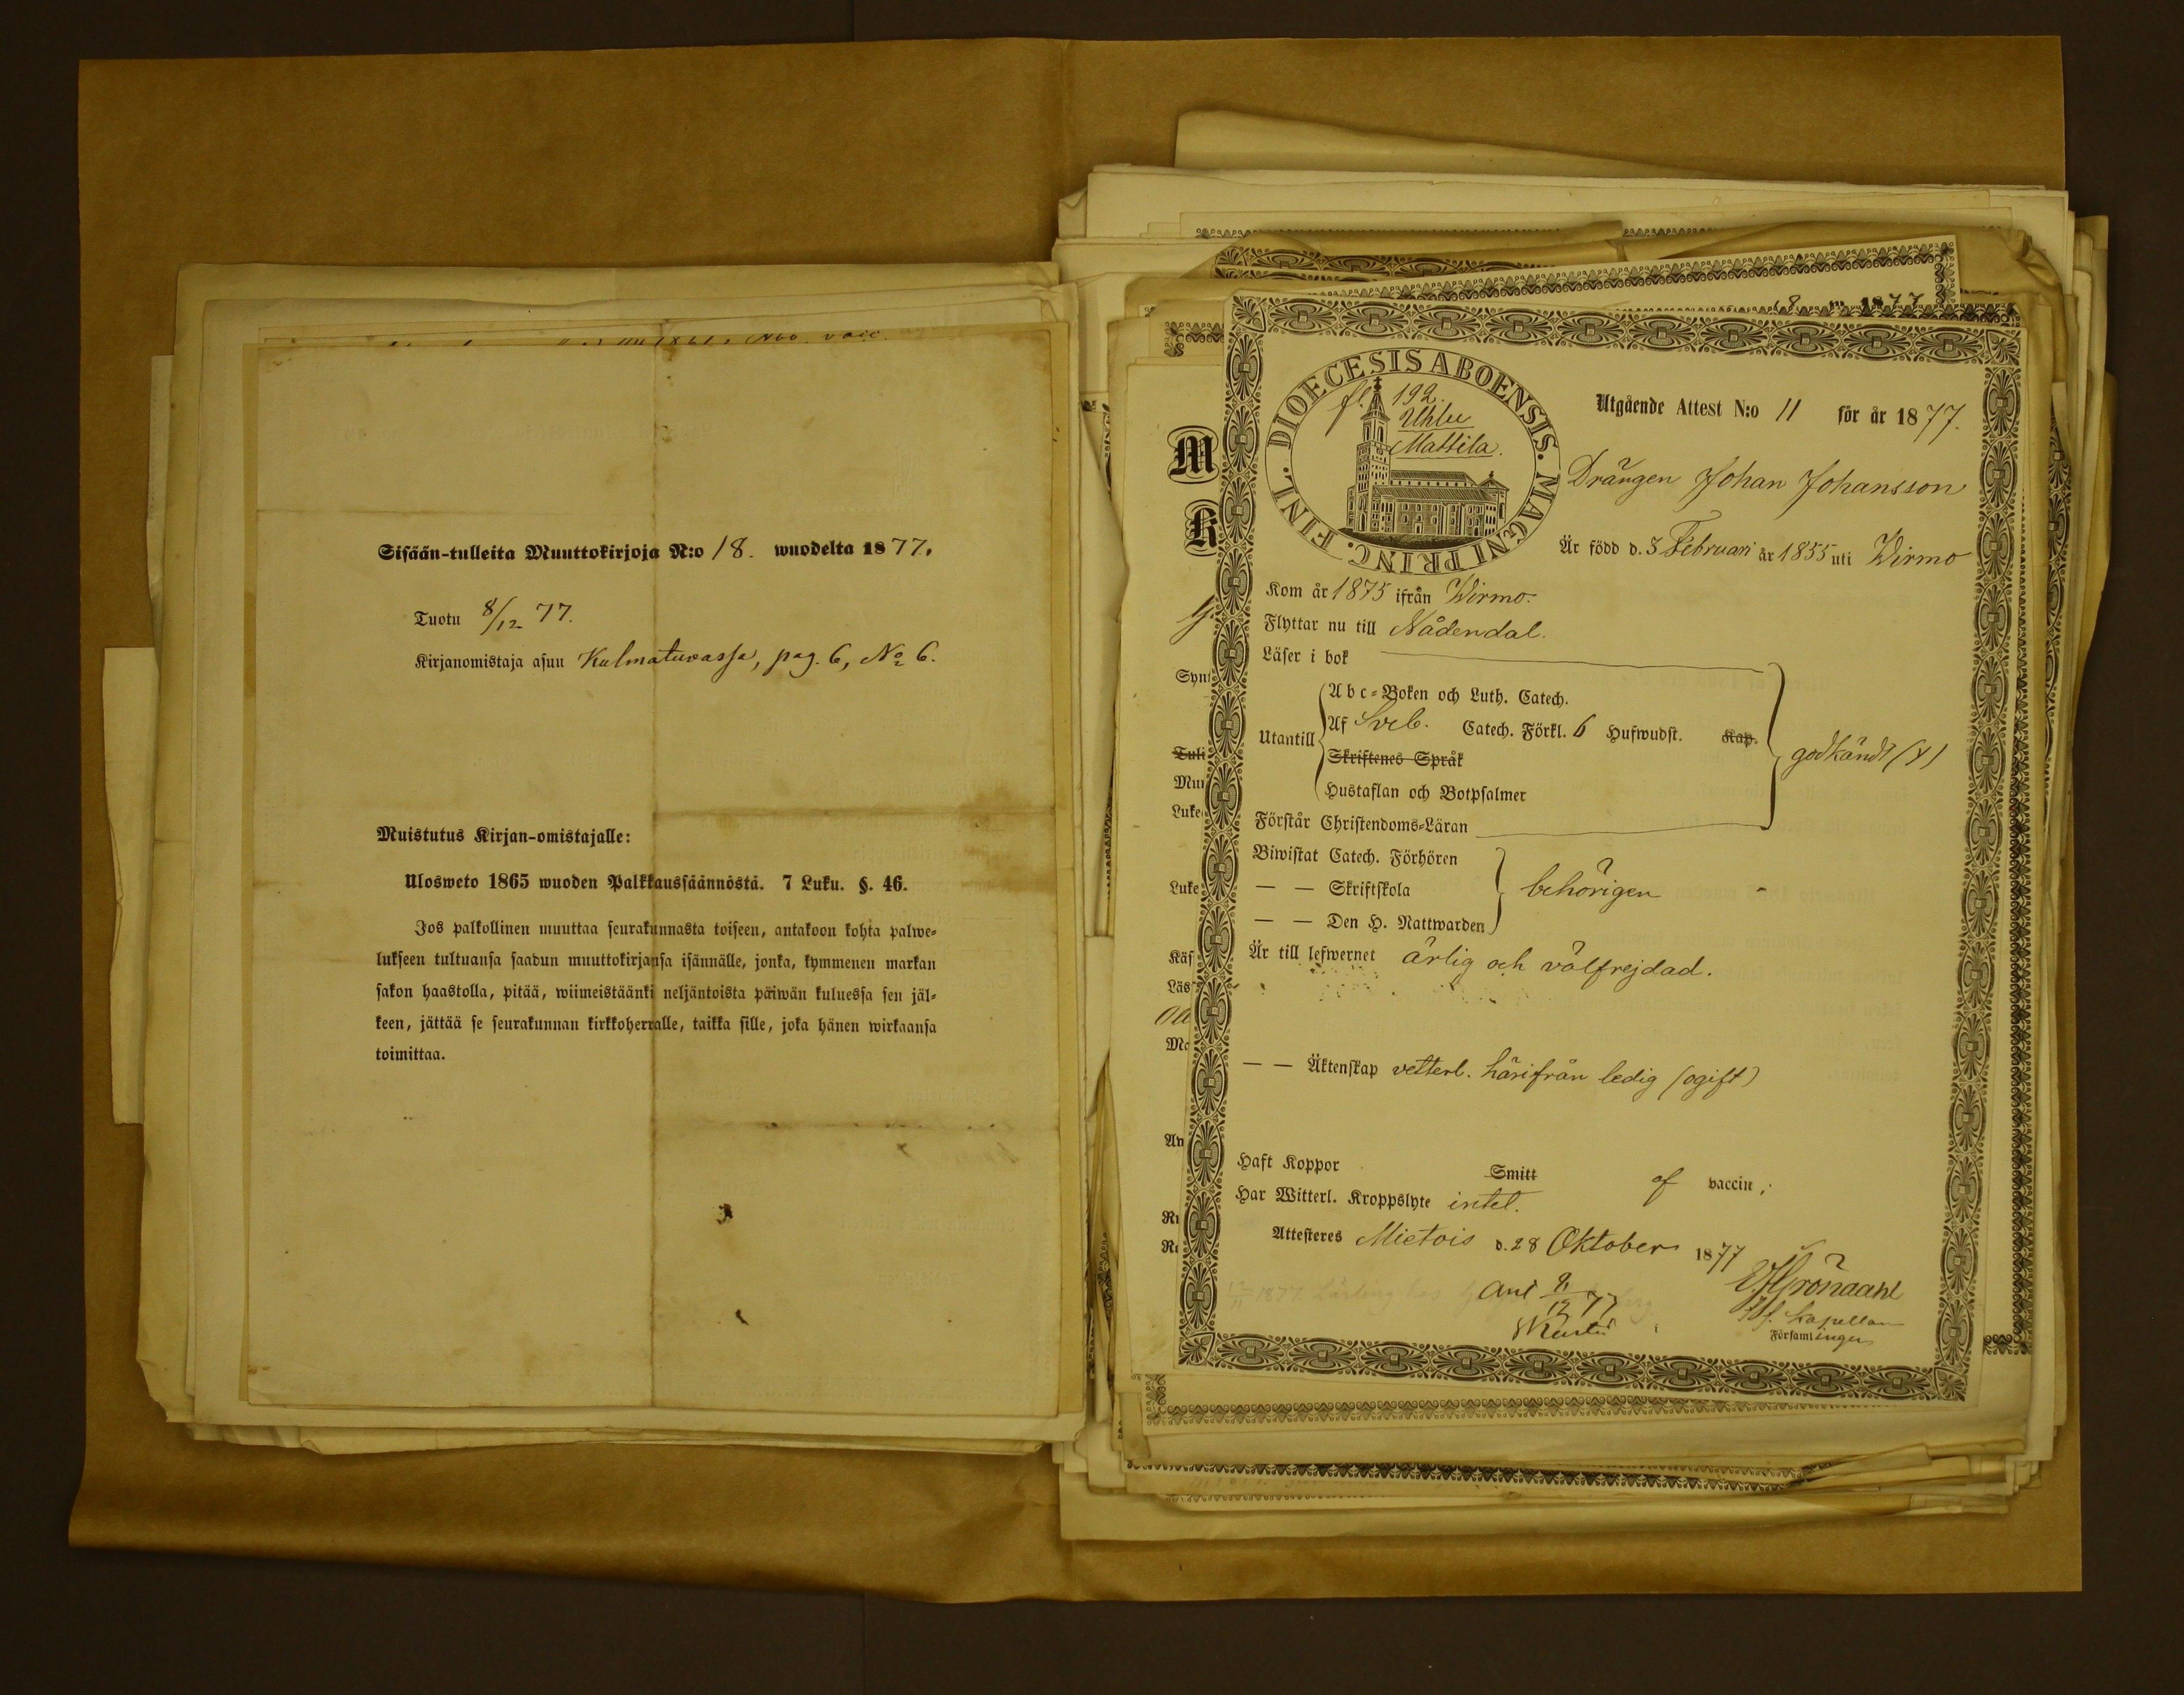 Sisään-tulleita Muuttokirjoja N:o 18. wuodelta 1877.
Tuotu 8/12 77.
Kirjanomistaja asuu Kulmatuvassa, pag. 6, No 6.
Muistutus Kirjan-omistajalle:
Ulosweto 1865 wuoden Palkkaussäännöstä. 7 Luku. §. 46.
Jos palkollinen muuttaa seurakunnasta toiseen, antakoon kohta palwe-
lukseen tultuansa saadun muuttokirjansa isännälle, jonka, kymmenen markan
sakon haastolla, pitää, wiimeistäänki neljäntoista päiwän kuluessa sen jäl-
keen, jättää se seurakunnan kirkkoherralle, taikka sille, joka hänen wirkaansa
toimittaa.
DIOECESIS ABOENSIS. MAGNI PRINC. FINL.
fl. 192.
Uhlu
Mattila.
Utgående Attest N:o 11 för år 1877.
Drängen Johan Johansson
Är född d. 3 Februari år 1855 uti Wirmo
Kom år 1875 ifrån Wirmo.
Flyttar nu till Nådendal.
Läser i bok
Utantill
Abc-Boken och Luth. Catech.
Af Sveb. Catech. Förkl. 6 Hufwudst. Kap.
Skriftenes Språk
Hustaflan och Botpsalmer
godkändt (x)
Förstår Christendoms-Läran
Biwistat Catech. Förhören
— — Skriftskola
— — Den H. Nattwarden
behörigen
Är till lefwernet ärlig och välfrejdad.
— — Äktenskap vetterl. härifrån ledig (ogift)
Haft Koppor Smitt of vaccin;
Har Witterl. Kroppslyte intet.
Attesteres Mietois d. 28 Oktober 1877
Gröndahl
Kapellan
Församlingen
8/12 77